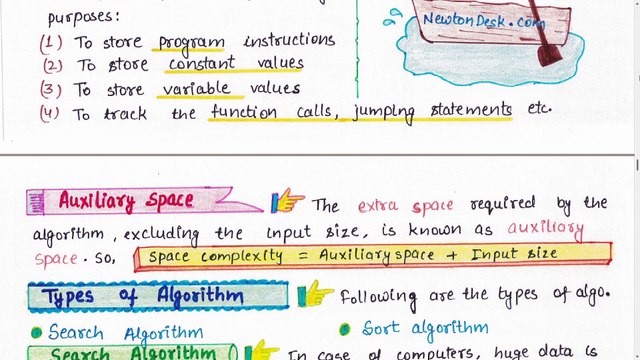 purposes:
NewtonDesk.com
(1) To store program instructions
(2) To store constant values
(3) To store variable values
(4) To track the function calls, jumping statements etc.
Auxiliary Space
The extra space required by the
algorithm, excluding the input size, is known as auxiliary
space. So, Space complexity = Auxiliary space + Input size
Types of Algorithm
Following are the types of algo.
Search Algorithm
Sort algorithm
Search Algorithm
In case of computers, huge data is